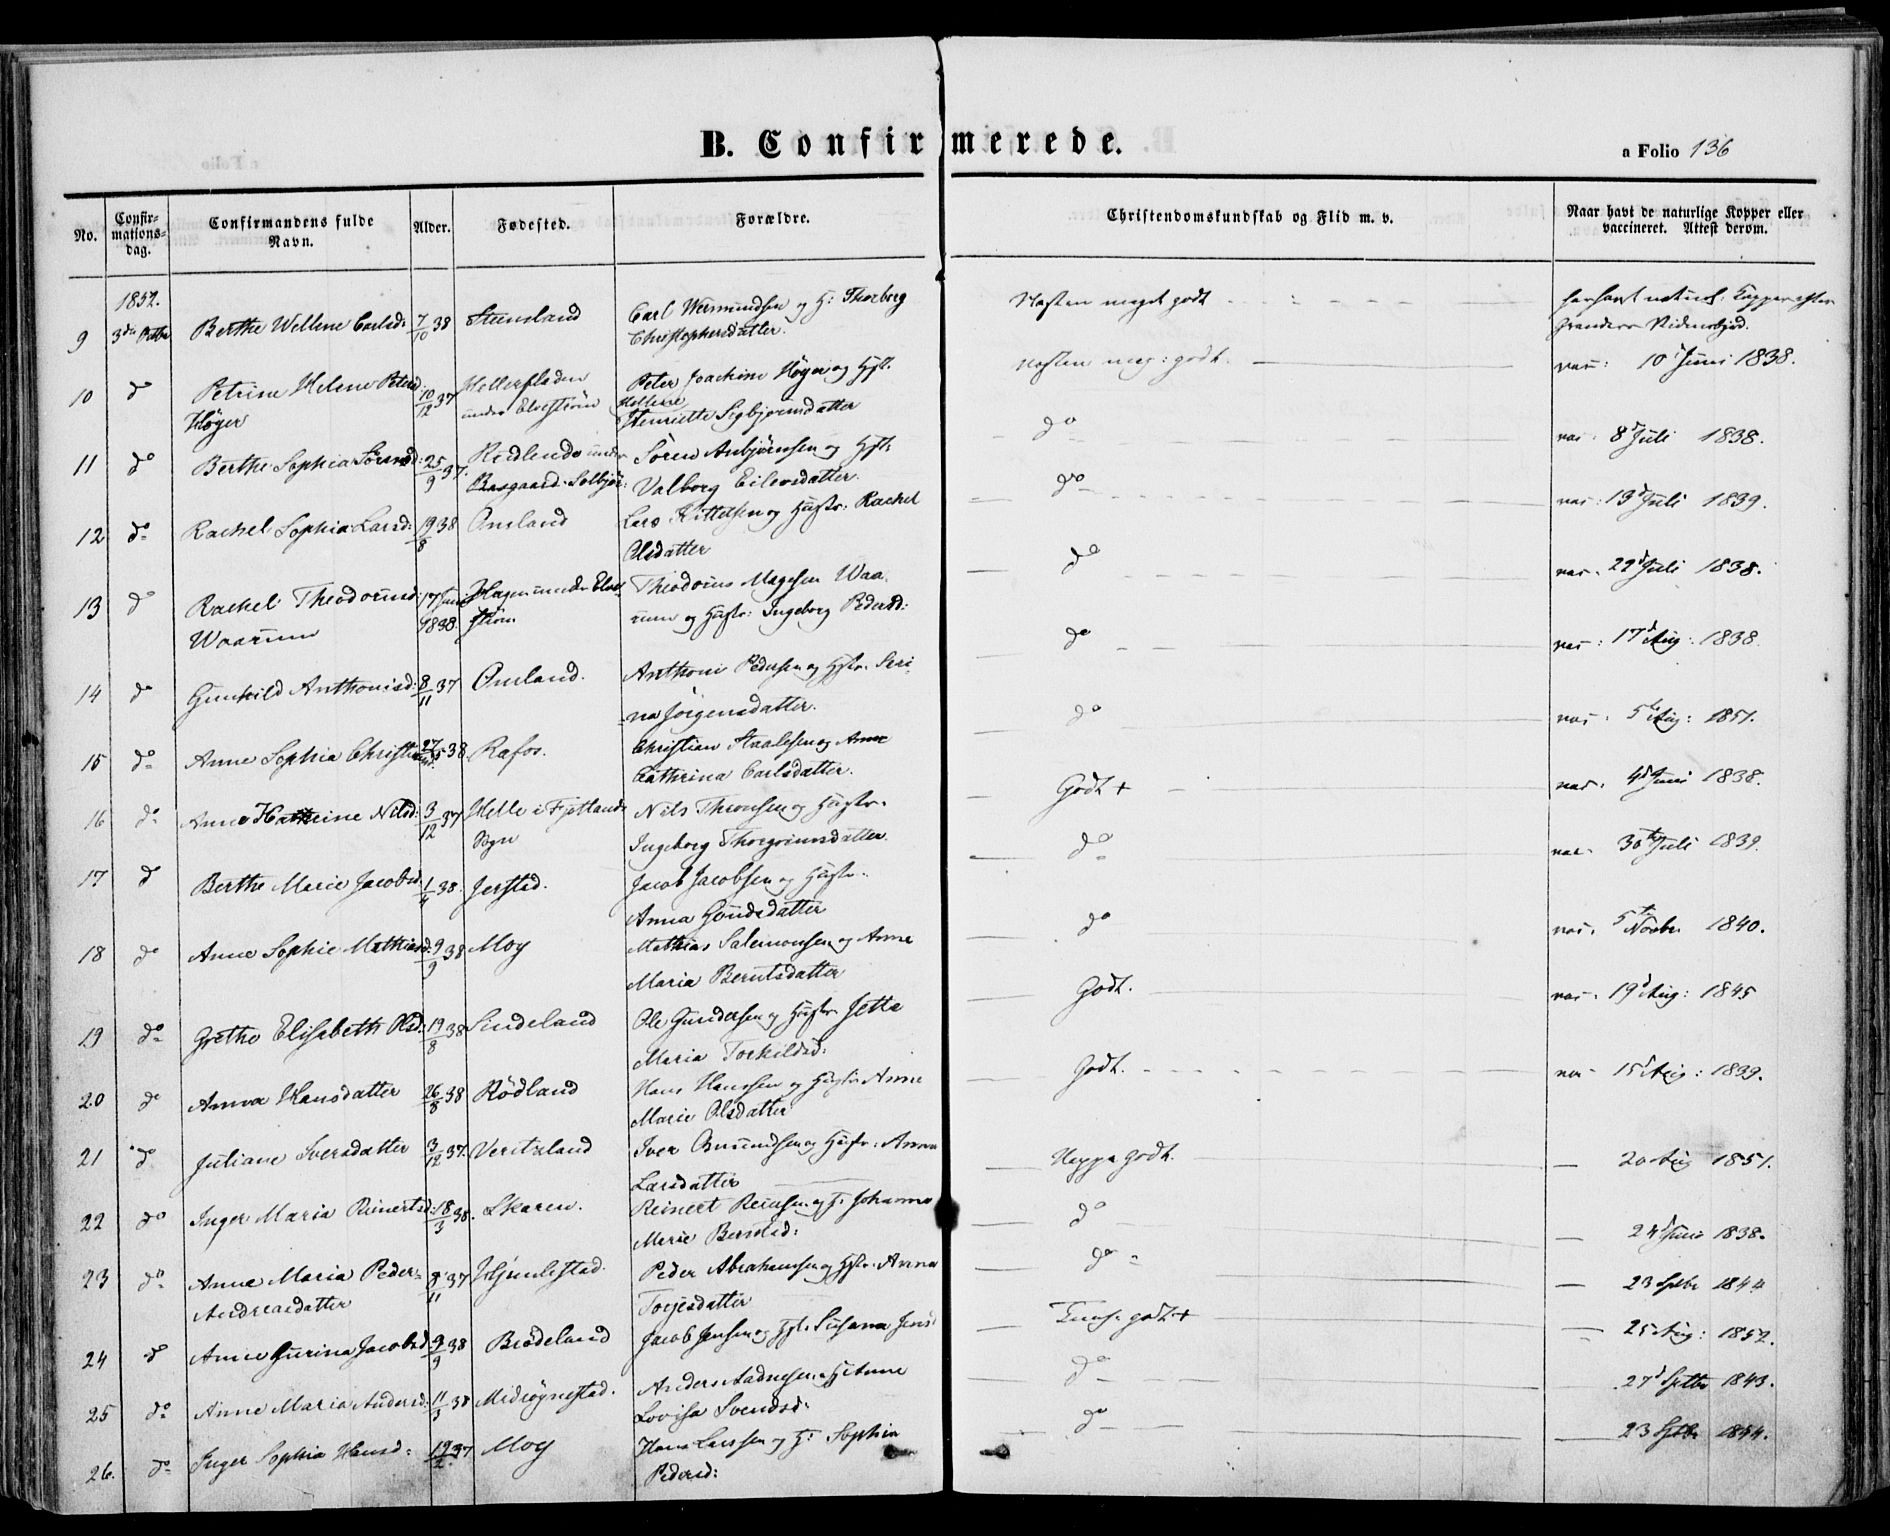 B. Confirmerede.
a Folio 136
No.
Confirmationsdag.
Confirmandens fulde Navn.
Alder.
Fødested.
Forældre.
Christendomskundskab og Flid m. v.
Naar havt de naturlige Kopper eller vaccineret. Attest derom.
1852.
9 3die Octbr Berthe Wellene Carlsd: 7/10 38 Steensland Carl Wermundsen og H: Thorborg Christophersdatter. Næsten meget godt
10 do Petrine Helene Petersd: Høyer 10/12 37 Hellesfladen under Elvestrøm Peter Joachim Høyer og Hst. Hellene Henriette Sigbjørnsdatter Næsten meg: godt. vac: 10d Juni 1838.
11 do Berthe Sophia Sørensd: 25/9 37. under Søren Anbjørnsen og Hst: Valborg Eilevsdatter. do vac: 8d Juli 1838.
12 do Rachel Sophia Larsd: 19/8 38 Omland Lars Kittelsen og Hustr: Rachel Olsdatter do vac: 13d Juli 1839.
13 do Rachel Theodorusd: Waarum 17 Juni 1838. Hagen under Elvestrøm Theodorus Magesen Waarum og Hustr: Ingeborg Pedersd: do vac. 22d Juli 1838.
14 do Gunhild Anthonisd: 8/11 37 Omland. Anthoni Pedersen og Hstr. Serina Jörgensdatter. do vac: 17d Aug: 1838
15 do Anne Sophia Christiansd. 27/5 38. Rafos. Christian Staalesen og Anne Cathrina Carlsdatter. do vac: 5te Aug: 1851.
16 do Anne Kathrine Nilsd: 3/12 37 Helle i Fjotlands Sogn Nils Thronsen og Hustr. Ingeborg Thorgrimsdatter. Godt + vac. 4d Juni 1838.
17 do Berthe Marie Jacobsd. 1/4 38. Jerstad. Jacob Jacobsen og Hustr. Anna Gundsdatter do vac. 30te Juli 1839.
18 do Anne Sophie Mathiasd: 9/9 38 Moy Mathias Salemonsen og Anne Maria Berntsdatter do vac. 5te Novbr 1840.
19 do Grethe Elisabeth Olsd: 19/8 38 Sindeland Ole Gundersen og Hustr Jette Maria Torkildsd: Godt. vac. 19d Aug: 1845
20 do Anna Hansdatter 26/8 38 Rödland Hans Hanssen og Hustr Anne Marie Olsdatter Godt. vac 15d Aug: 1839.
21 do Juliane Iversdatter 3/12 37. Veritzland Iver Omundsen og Hustr: Anna Larsdatter Neppe godt. 20 Aug 1851.
22 do Inger Maria Reinertsd: 18/3 38. Skaren. Reinert Reiersen og H: Johanne Marie Berntsd: do 24d Juni 1838.
23 do Anna Maria Peder-Andreasdatter 8/11 37 Hjemlestad. Peder Abrahamsen og Hstr. Anna Torjesdatter do 23 Sptbr 1844
24 do Anne Gurina Jacobsd: 9/9 38 Brödeland Jacob Jensen og Hst. Susanna Jensd Temh: godt + 25 Aug: 1852.
25 do Anne Maria Andersd: 11/3 38 Midrøgnestad. Anders Aadnesen H: Anne Lovisa Svendsd: do 27d Sptbr 1843.
26. do Inger Sophia Hansd: 19/12 37 Moy Hans Larssen og H: Sophia Pedersd: do 23 Sptbr 1844.